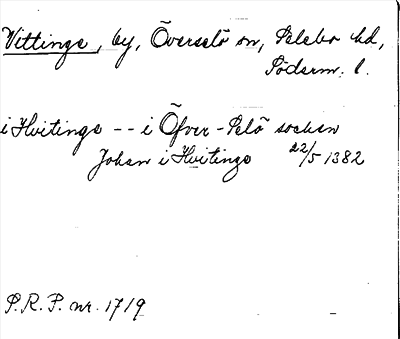 Vittinge, by, Överselö sn, Selebo hd,
Söderm. l.
i Hvitinge -- i Öfver-Selö socken
Johan i Hvitinge 22/5 1382
P.R.P. nr. 1719